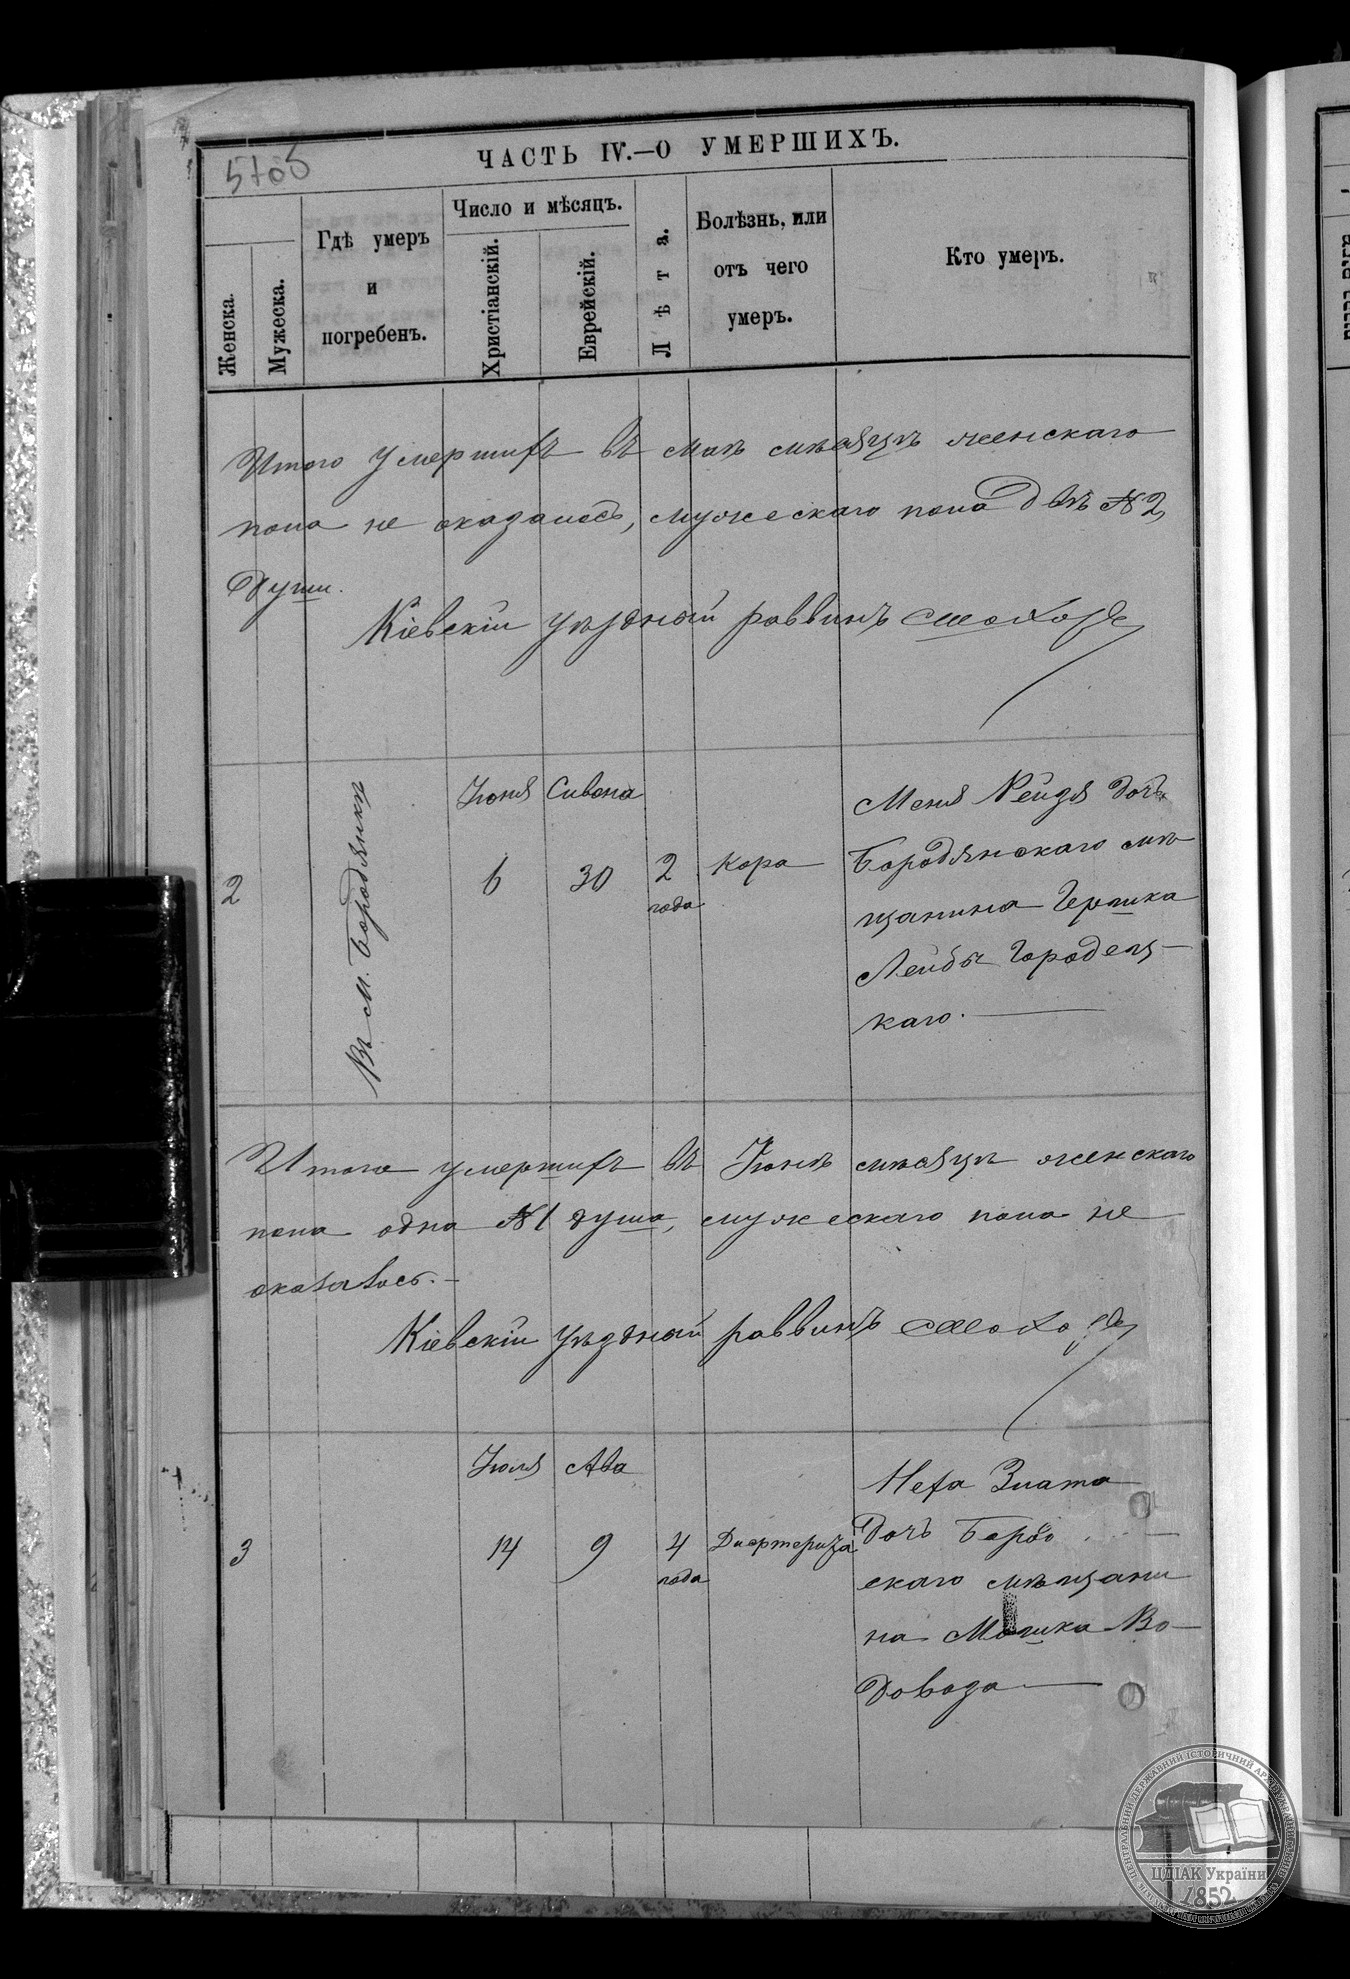 5705
ЧАСТЬ IV.—О УМЕРШИХЪ.
Женска.
Мужеска.
Гдѣ умеръ
и
погребенъ.
Число и мѣсяцъ.
Христіанскій.
Еврейскій.
Лѣта.
Болѣзнь, или
отъ чего
умеръ.
Кто умеръ.
Итого умершихъ въ маѣ мѣсяцѣ женскаго
пола не оказалось, мужескаго пола двѣ № 2
души.
Кіевскій уѣздный раввинъ
Іюня Сивона
2
Въ м. Бородянкѣ
6
30
2
года
Кора
Меня Рейзя дочь
Бородянскаго мѣ
щанина Гершка
Лейбы Городец-
каго.
Итого умершихъ въ Іюнѣ мѣсяцѣ женскаго
пола одна № 1 душа, мужескаго пола не
оказалось.
Кіевскій уѣздный раввинъ
Іюля Ава
3
14
9
4
года
Дифтерита
Неха Злата
дочь Бородо
скаго мѣщани
на Мошка Во-
довоза
ЦЕНТРАЛЬНИЙ ДЕРЖАВНИЙ ІСТОРИЧНИЙ АРХІВ УКРАЇНИ
ЦДІАК України
1852